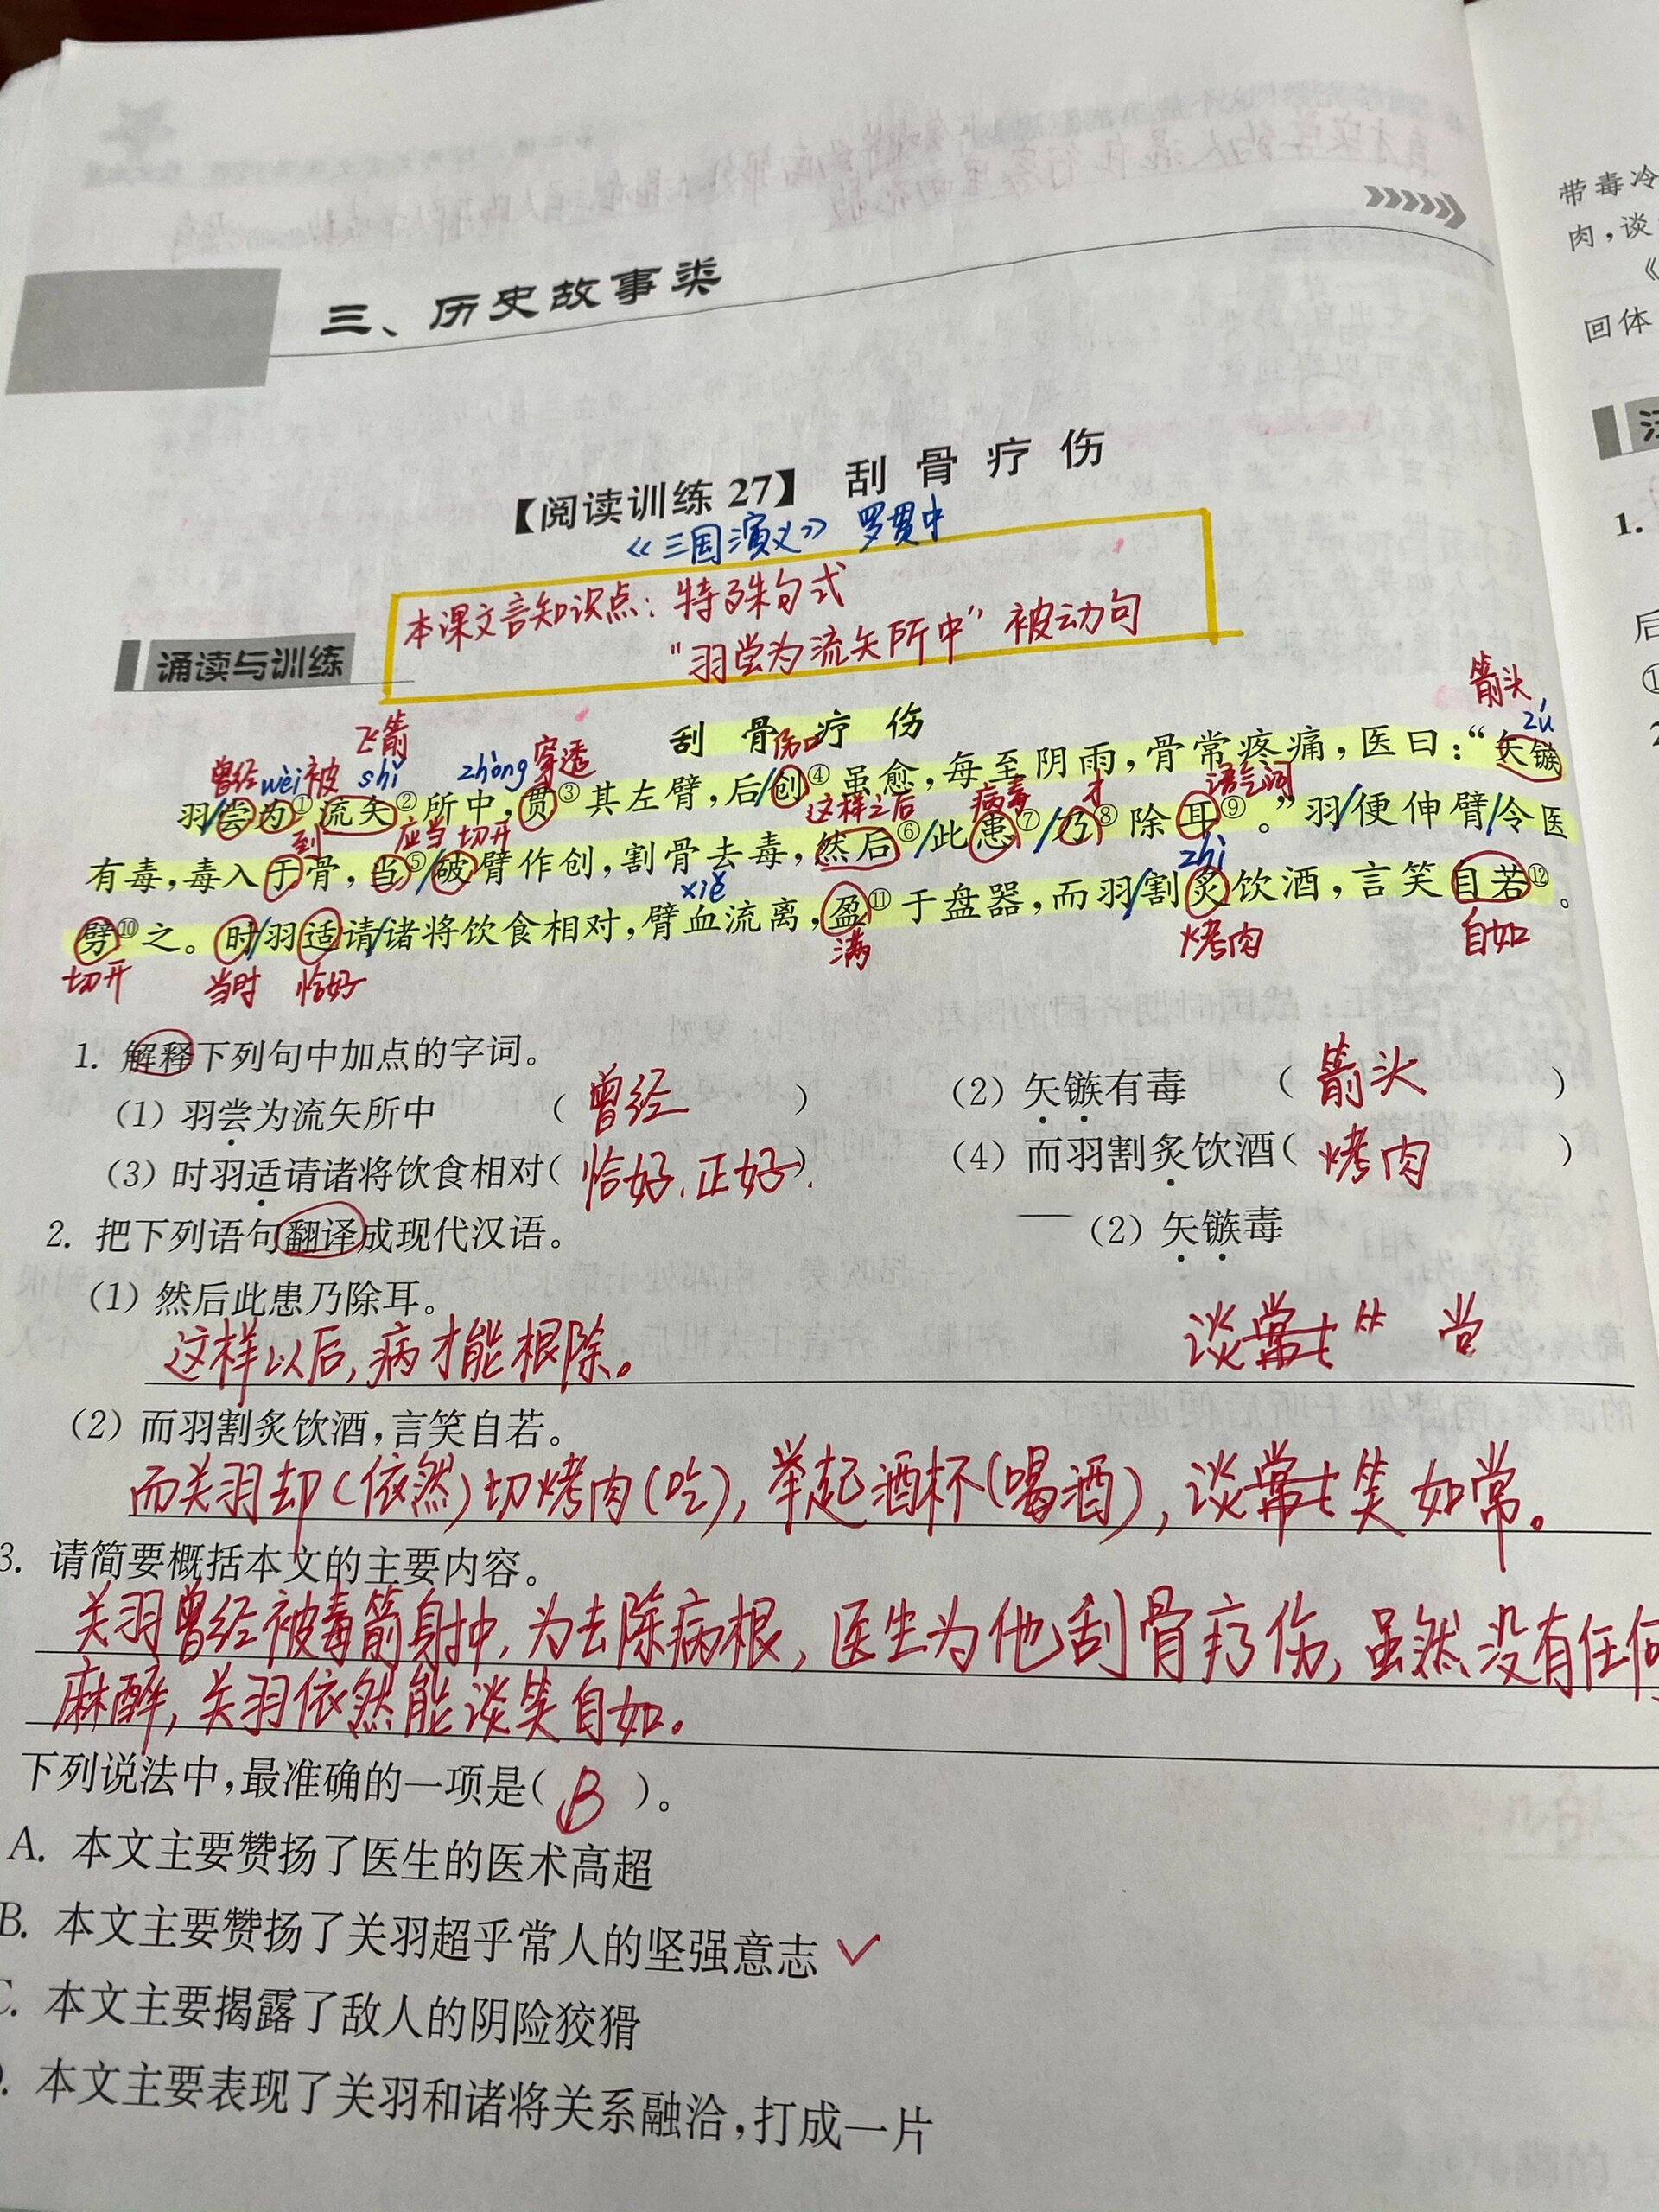 三、历史故事类
【阅读训练 27】 刮骨疗伤
《三国演义》 罗贯中
本课文言知识点：特殊句式
"羽尝为流矢所中" 被动句
诵读与训练
刮骨疗伤
箭头
飞箭
曾经 wèi 被 shǐ zhòng 穿透 伤口 zú
羽/尝为①流矢②所中，贯③其左臂，后/创④虽愈，每至阴雨，骨常疼痛，医曰：“矢镞
到 应当 切开 这样之后 病毒 才 语气词
有毒，毒入于骨，当⑤/破臂作创，割骨去毒，然后⑥/此患⑦/乃⑧除耳⑨。”羽/便伸臂/令医
xiě zhì
劈⑩之。时/羽适请/诸将饮食相对，臂血流离，盈⑪于盘器，而羽/割炙饮酒，言笑自若⑫。
切开 当时 恰好 满 烤肉 自如
1. 解释下列句中加点的字词。
（1）羽尝为流矢所中 （ 曾经 ） （2）矢镞有毒 （ 箭头 ）
（3）时羽适请诸将饮食相对（ 恰好、正好 ） （4）而羽割炙饮酒（ 烤肉 ）
2. 把下列语句翻译成现代汉语。 （2）矢镞毒
（1）然后此患乃除耳。
这样以后，病才能根除。
（2）而羽割炙饮酒，言笑自若。
而关羽却（依然）切烤肉（吃），举起酒杯（喝酒），谈笑如常。
3. 请简要概括本文的主要内容。
关羽曾经被毒箭射中，为去除病根，医生为他刮骨疗伤，虽然没有任何
麻醉，关羽依然能谈笑自如。
下列说法中，最准确的一项是（ B ）。
A. 本文主要赞扬了医生的医术高超
B. 本文主要赞扬了关羽超乎常人的坚强意志
C. 本文主要揭露了敌人的阴险狡猾
. 本文主要表现了关羽和诸将关系融洽，打成一片
带毒冷
肉，谈
《
回体
1.
后
①